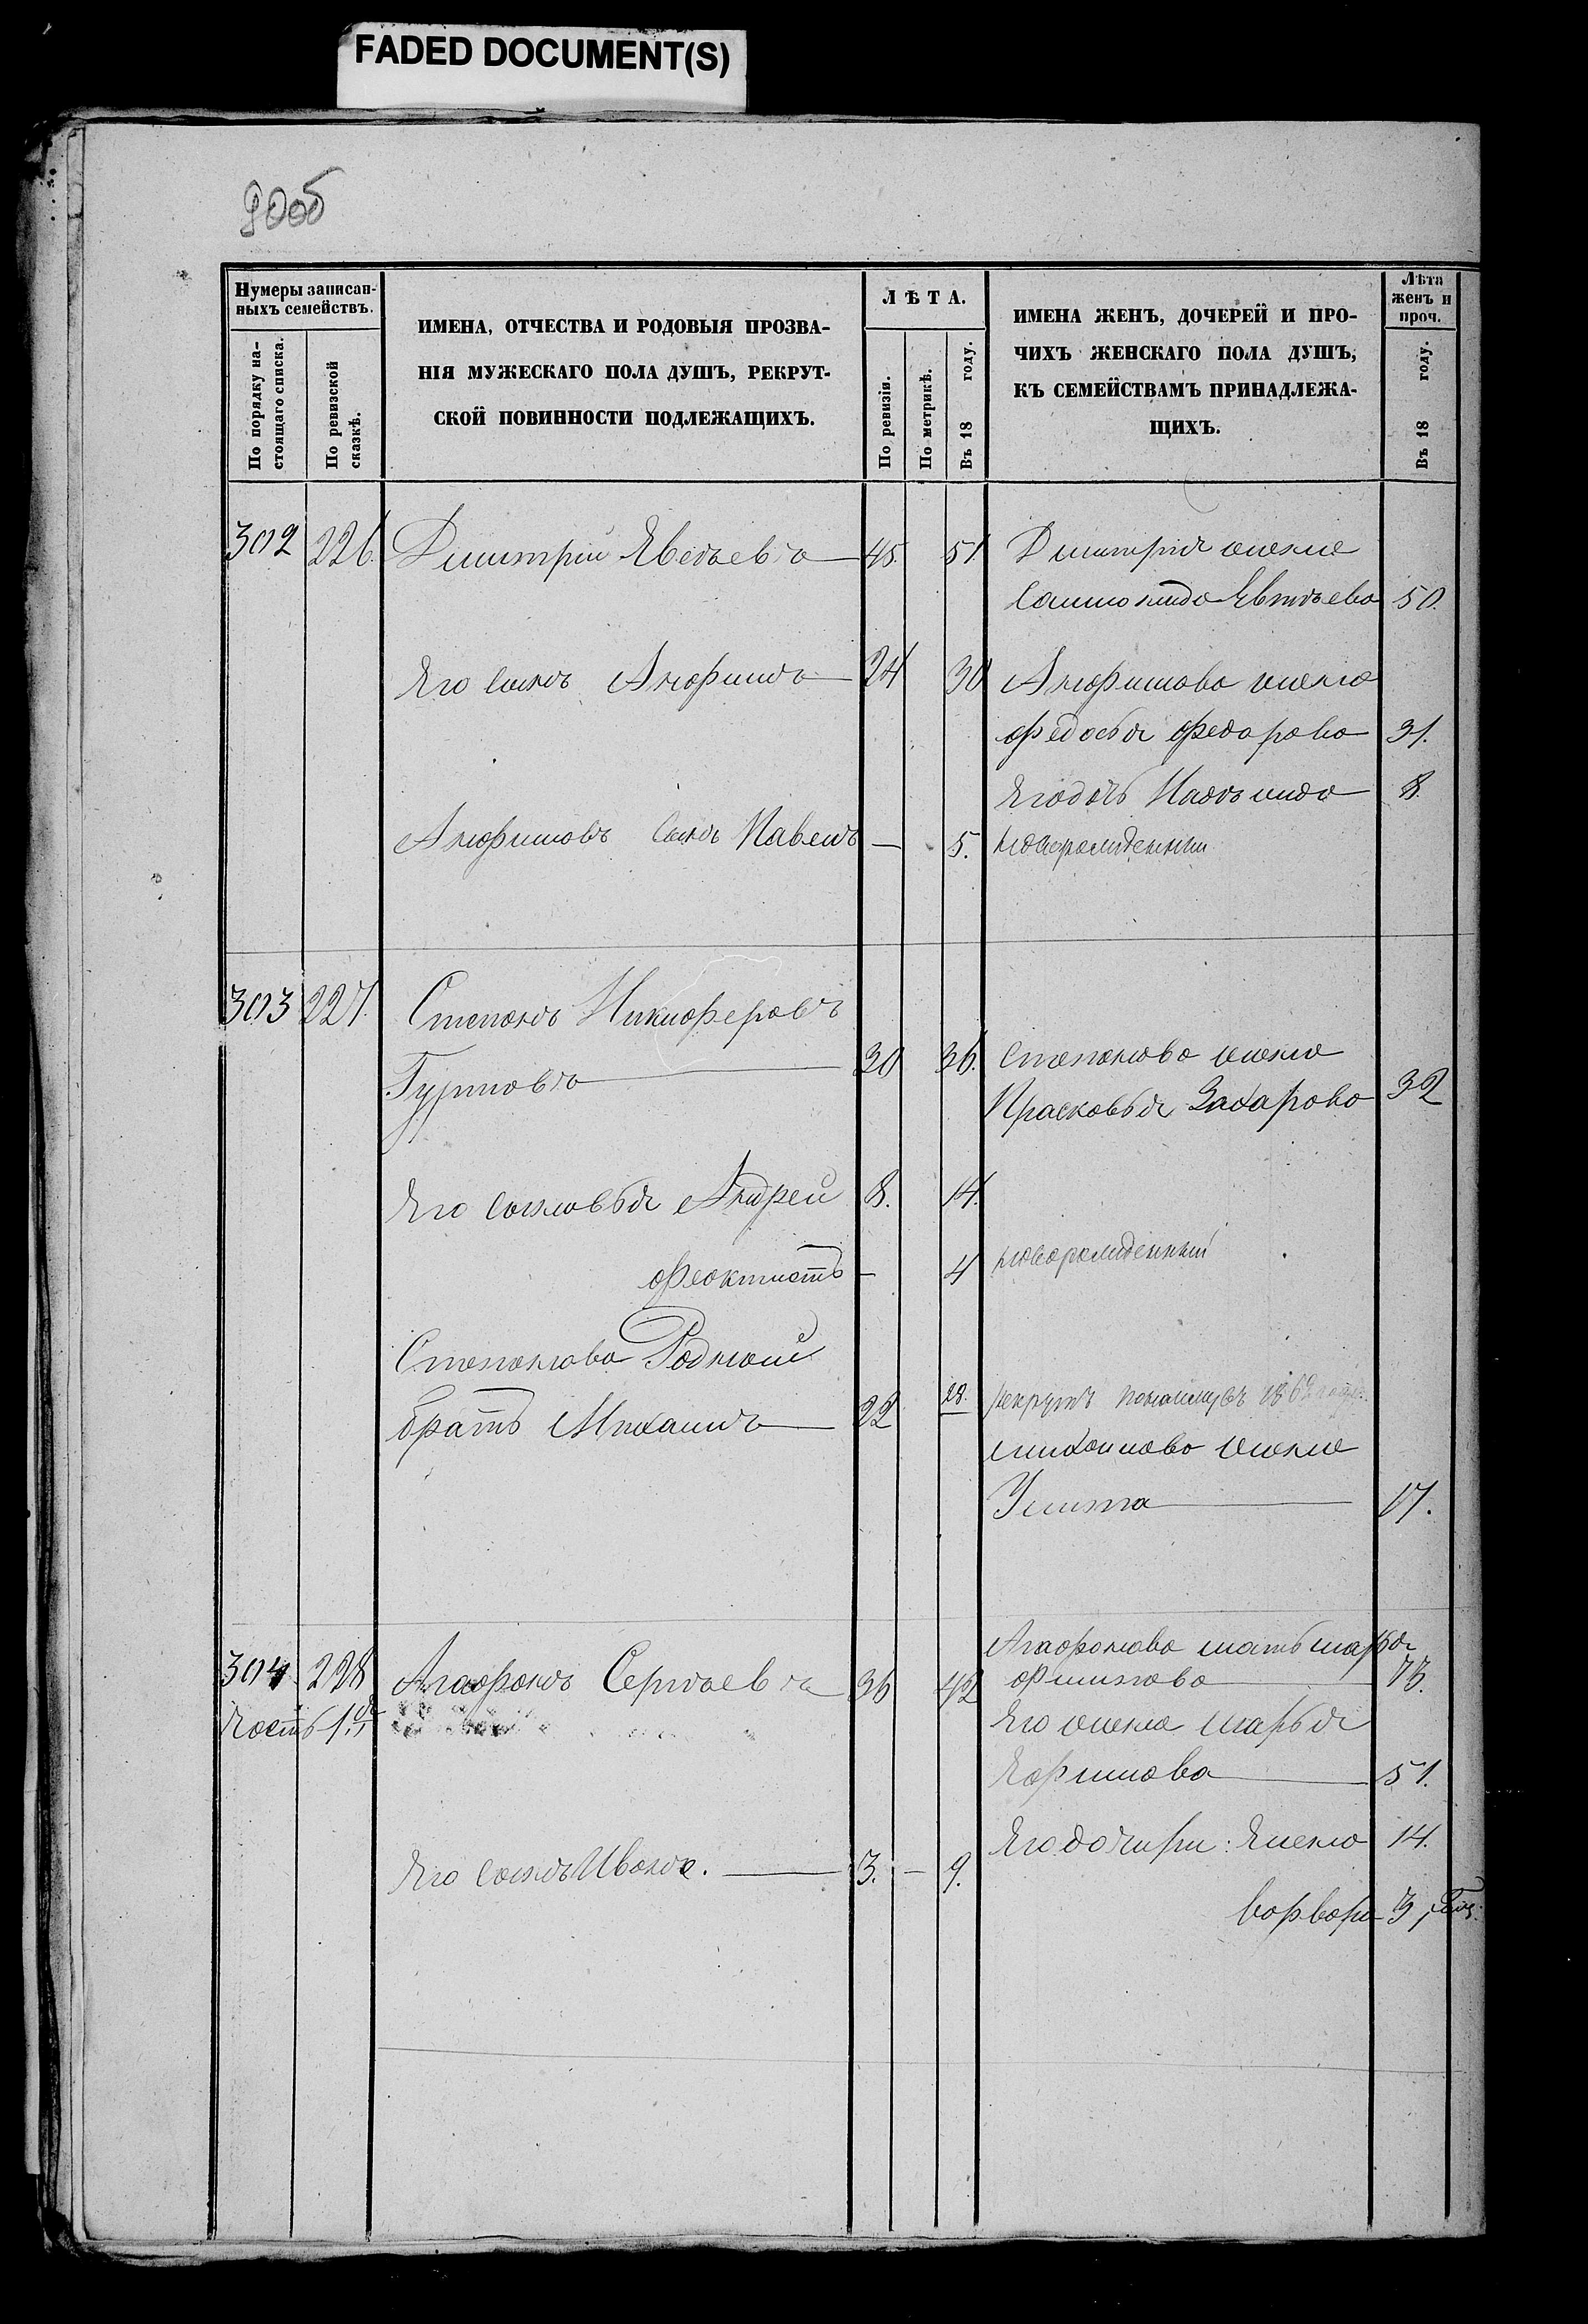 FADED DOCUMENT(S)
90об
Нумеры записан-
ныхъ семействъ.
По порядку на-
стоящаго списка.
По ревизской
сказкѣ.
ИМЕНА, ОТЧЕСТВА И РОДОВЫЯ ПРОЗВА-
НІЯ МУЖЕСКАГО ПОЛА ДУШЪ, РЕКРУТ-
СКОЙ ПОВИННОСТИ ПОДЛЕЖАЩИХЪ.
ЛѢТА.
По ревизіи.
По метрикѣ.
Въ 18 году.
ИМЕНА ЖЕНЪ, ДОЧЕРЕЙ И ПРО-
ЧИХЪ ЖЕНСКАГО ПОЛА ДУШЪ,
КЪ СЕМЕЙСТВАМЪ ПРИНАДЛЕЖА-
ЩИХЪ.
Лѣта
женъ и
проч.
Въ 18 году.
302 226. Дмитрій 45. 51. Дмитрія жена
50.
Его сынъ Анфимъ 24 30 Анфимова жена
Федосья Федарова 31.
Его дочь 8.
Анфимовъ сынъ Павелъ — 5. новорожденный
303 227. Степанъ Никифоровъ
30 36. Степанова жена
Прасковья Захарова 32
Его сыновья Андрей 8. 14.
Феоктистъ — 4 новорожденный
Степанова Родной
братъ Михаилъ 22 28. рекрутъ 1862
Михаилова жена
Улита 17.
304 228 Агафонъ Сергѣевъ 36 42 Агафонова мать Марья
Филипова 73.
Часть 1я
Его жена Марья
Ефимова 51.
Его дочири: Елена 14.
Его сынъ Иванъ. 3. — 9.
Варвара 3